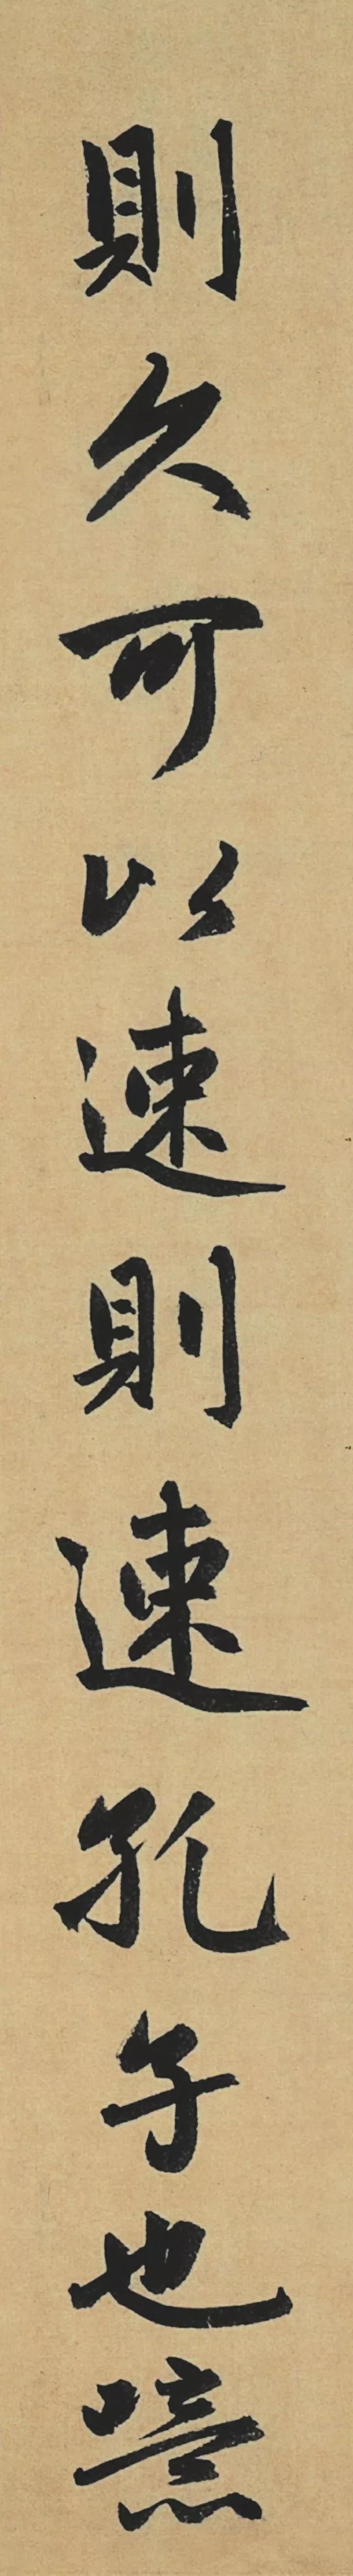 則久可以速則速孔子也噫